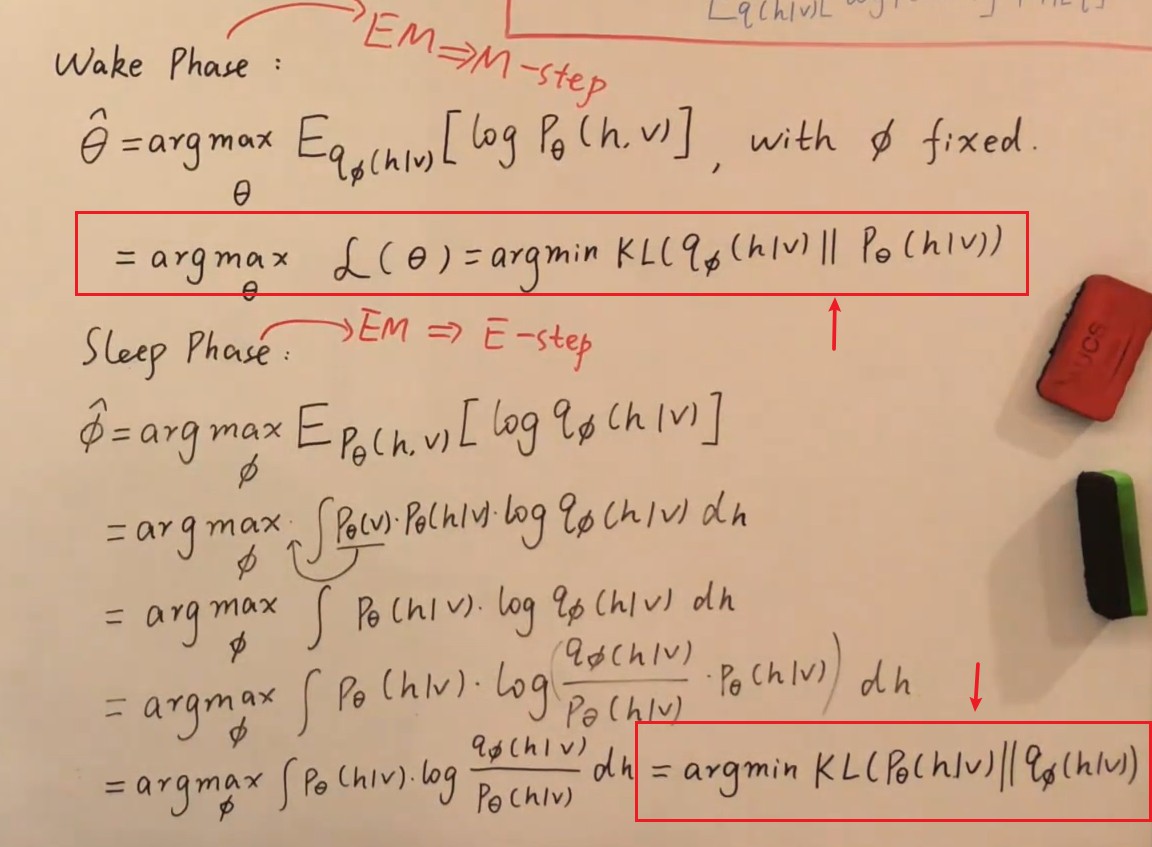 Wake Phase :
EM ⇒ M-step
θ̂ = argmax_θ E_{q_ϕ(h|v)} [ log P_θ (h, v) ] , with ϕ fixed.
= argmax_θ L(θ) = argmin KL(q_ϕ (h|v) || P_θ (h|v))
Sleep Phase :
EM ⇒ E-step
ϕ̂ = argmax_ϕ E_{P_θ(h,v)} [ log q_ϕ (h|v) ]
= argmax_ϕ ∫ P_θ(v) · P_θ(h|v) · log q_ϕ (h|v) dh
= argmax_ϕ ∫ P_θ (h|v) · log q_ϕ (h|v) dh
= argmax_ϕ ∫ P_θ (h|v) · log ( q_ϕ(h|v) / P_θ(h|v) · P_θ (h|v) ) dh
= argmax_ϕ ∫ P_θ (h|v) · log q_ϕ(h|v) / P_θ(h|v) dh = argmin KL(P_θ(h|v) || q_ϕ(h|v))